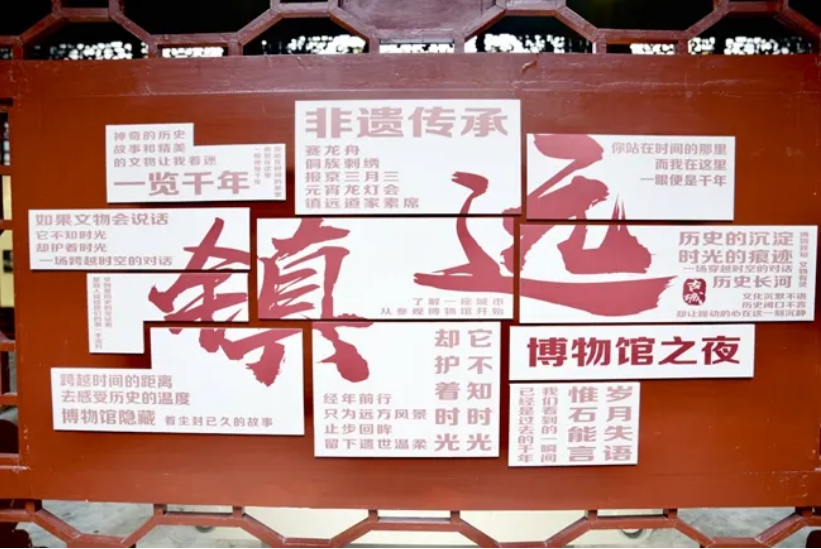 神奇的历史
故事和精美
的文物让我着迷
一览千年
非遗传承
赛龙舟
侗族刺绣
报京三月三
元宵龙灯会
镇远道家素席
你站在时间的那里
而我在这里
一眼便是千年
如果文物会说话
它不知时光
却护着时光
一场跨越时空的对话
镇远
了解一座城市
从参观博物馆开始
历史的沉淀
时光的痕迹
一场穿越时空的对话
古城
历史长河
文化沉默不语
历史闭口不言
却让躁动的心在这一刻沉静
跨越时间的距离
去感受历史的温度
博物馆隐藏 着尘封已久的故事
它不知时光
却护着时光
经年前行
只为远方风景
止步回眸
留下遗世温柔
博物馆之夜
岁月失语
惟石能言
我们看到的一瞬间
已经是过去的千年